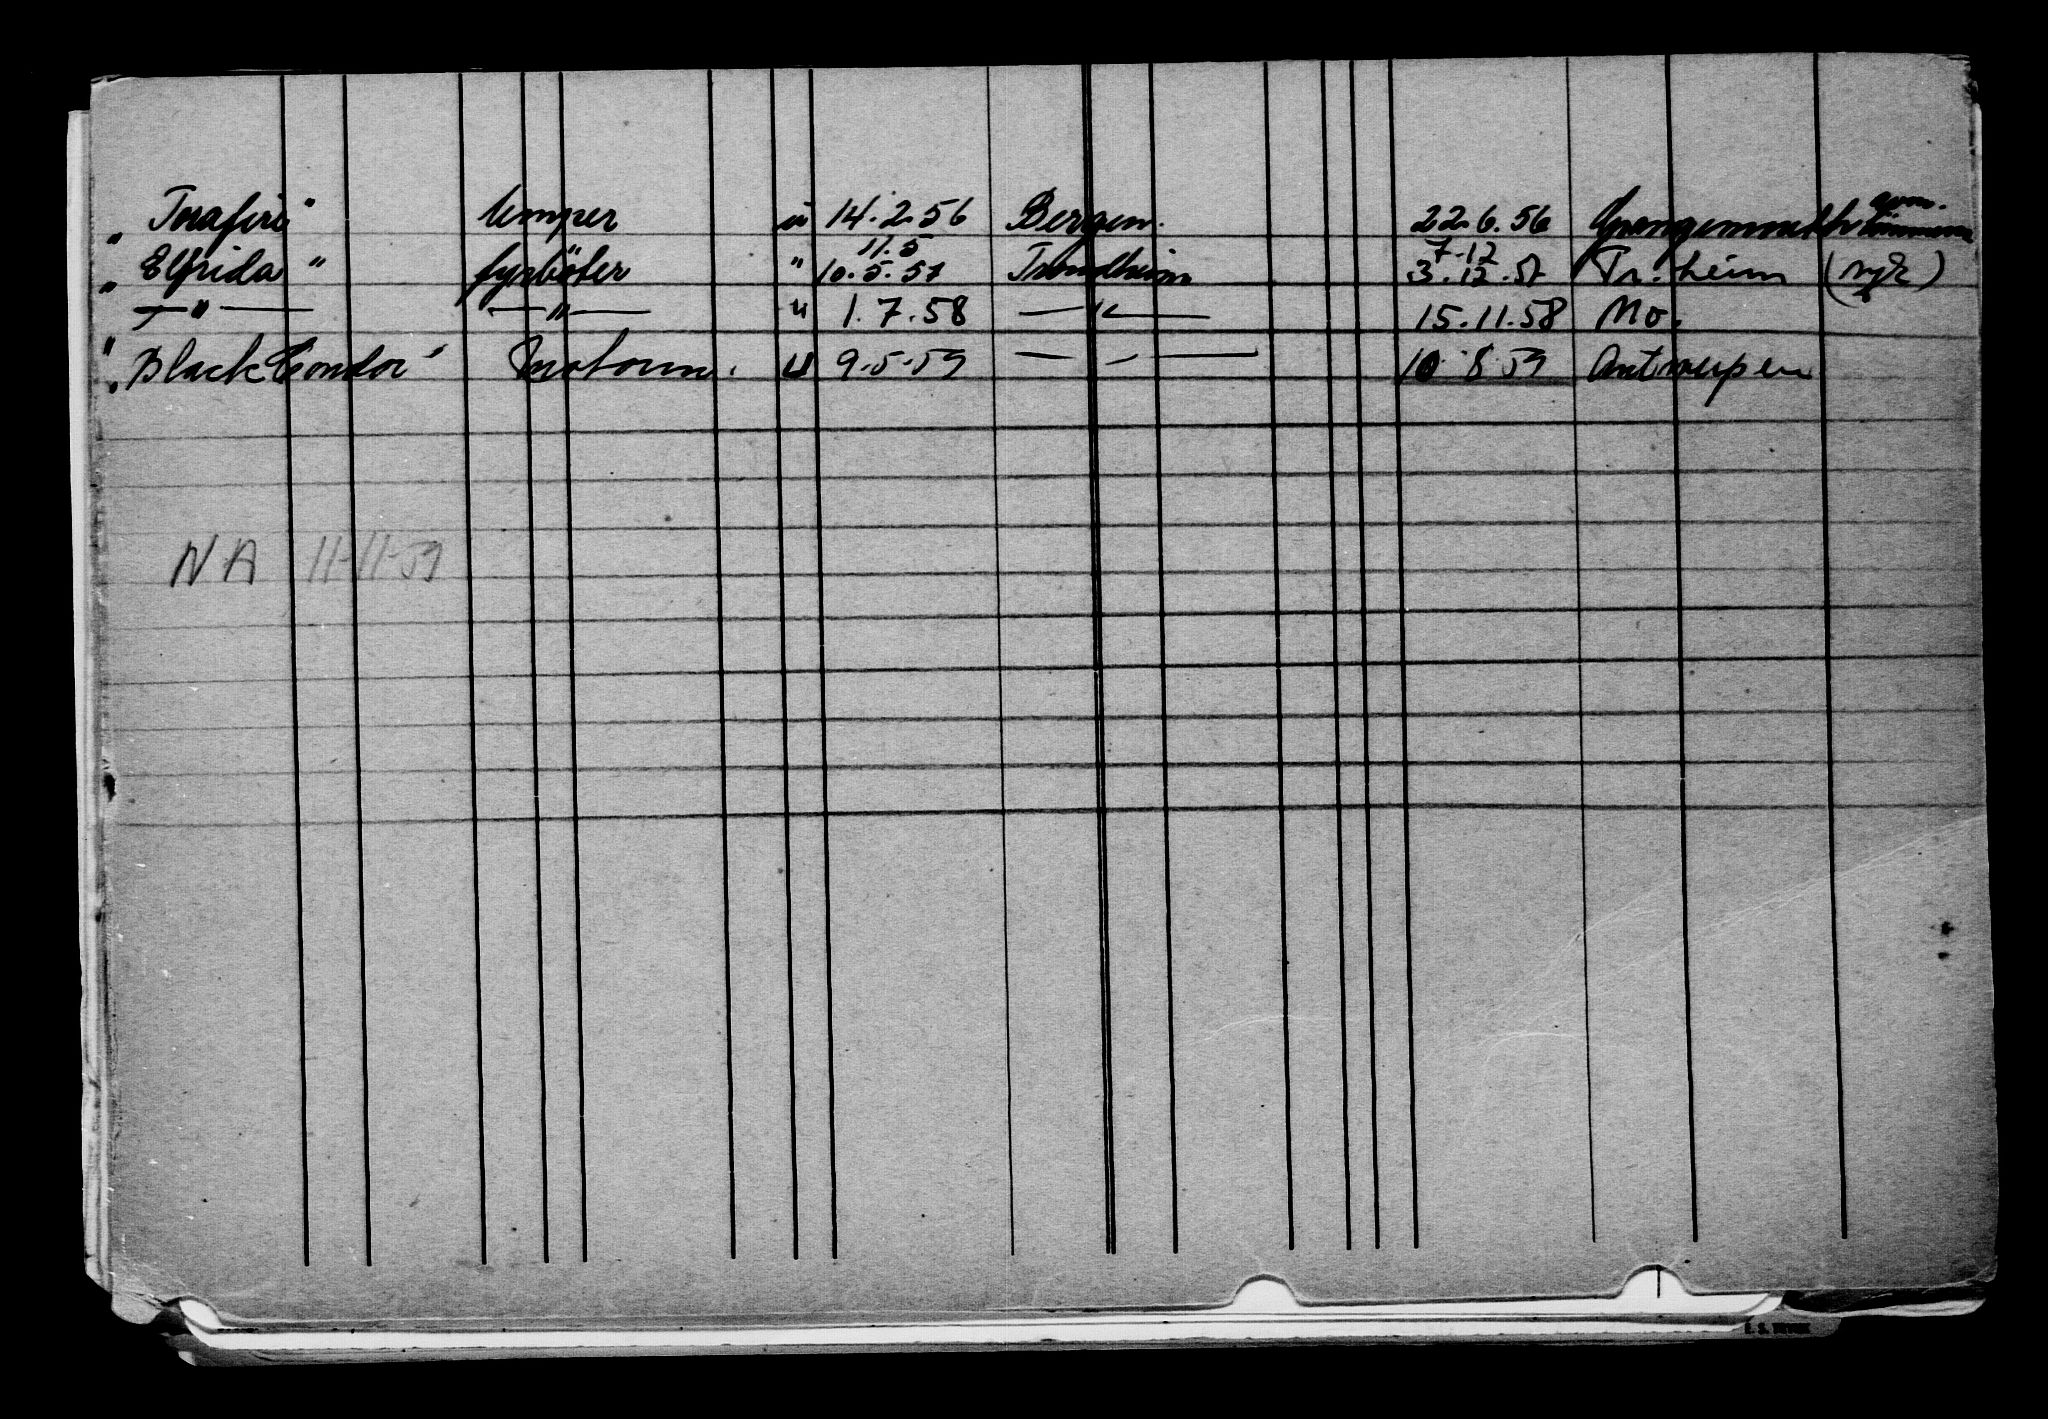 "Inafire" lemper u 14.2.56 Bergen. 22.6.56 Grangemouth
11.5 7.12
"Elfrida" fyrbøter " 10.5.57 Trondheim 3.12.57 Tr.heim (syk)
— " — — " — u 1.7.58 — " — 15.11.58 Mo.
"Black Condor" motorm. u 9.5.59 — " — 10.8.59 Antwerpen
NA 11-11-59